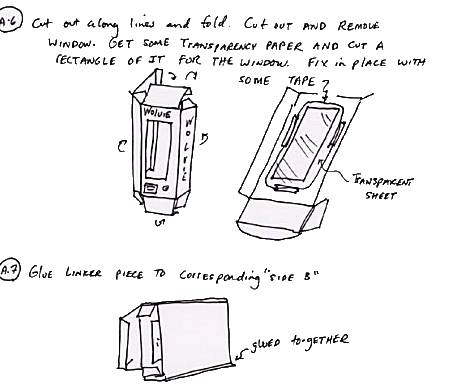 A.6 Cut out along lines and fold. Cut out AND REMOVE
WINDOW. GET SOME TRANSPARENCY PAPER AND CUT A
RECTANGLE OF IT FOR THE WINDOW. FIX in PLACE WITH
SOME TAPE?
WOLVIE
WOLVIE
TRANSPARENT
SHEET
A.7 Glue Linker piece to corresponding "SIDE B"
glued together